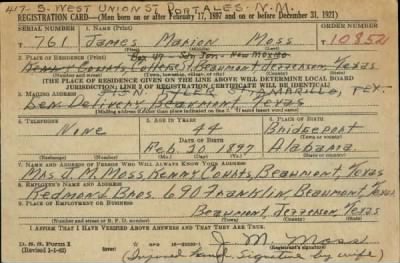 417- S. WEST UNION ST PORTALES - N.M.
REGISTRATION CARD—(Men born on or after February 17, 1897 and on or before December 31, 1921)
SERIAL NUMBER 1. NAME (Print) ORDER NUMBER
T 761 James Marion Moss 10852
(First) (Middle) (Last)
Box 47 San Jon - New Mexico
2. PLACE OF RESIDENCE (Print)
Kenny Courts, Beaumont Jefferson, Texas
(Number and street) (Town, township, village, or city) (County) (State)
[THE PLACE OF RESIDENCE GIVEN ON THE LINE ABOVE WILL DETERMINE LOCAL BOARD
JURISDICTION; LINE 2 OF REGISTRATION CERTIFICATE WILL BE IDENTICAL]
TYLER ST. AMARILLO, TEX.
3. MAILING ADDRESS
Gen. Delivery Beaumont Texas
[Mailing address if other than place indicated on line 2. If same insert word same]
4. TELEPHONE 5. AGE IN YEARS 6. PLACE OF BIRTH
None 44 Bridgeport
DATE OF BIRTH (Town or county)
Feb. 20 1897 Alabama
(Exchange) (Number) (Mo.) (Day) (Yr.) (State or country)
7. NAME AND ADDRESS OF PERSON WHO WILL ALWAYS KNOW YOUR ADDRESS
Mrs J. M. Moss Kenny Courts, Beaumont, Texas
8. EMPLOYER'S NAME AND ADDRESS
Redmond Bros. 690 Franklin, Beaumont, Texas
9. PLACE OF EMPLOYMENT OR BUSINESS
Beaumont, Jefferson, Texas
(Number and street or R. F. D. number) (Town) (County) (State)
I AFFIRM THAT I HAVE VERIFIED ABOVE ANSWERS AND THAT THEY ARE TRUE.
D. S. S. Form 1 J. M. Moss
(Revised 1-1-42) (Registrant's signature)
(Injured hand. Signature by wife)